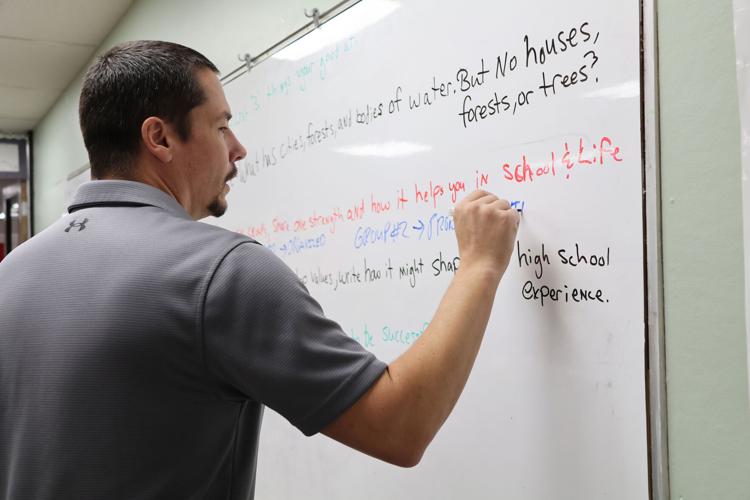 3 things your good at
what has cities, forests, and bodies of water. But No houses,
forests, or trees?
ready, share one strength and how it helps you in school & Life
GROUP #2 →
values, write how it might high school
experience.
be